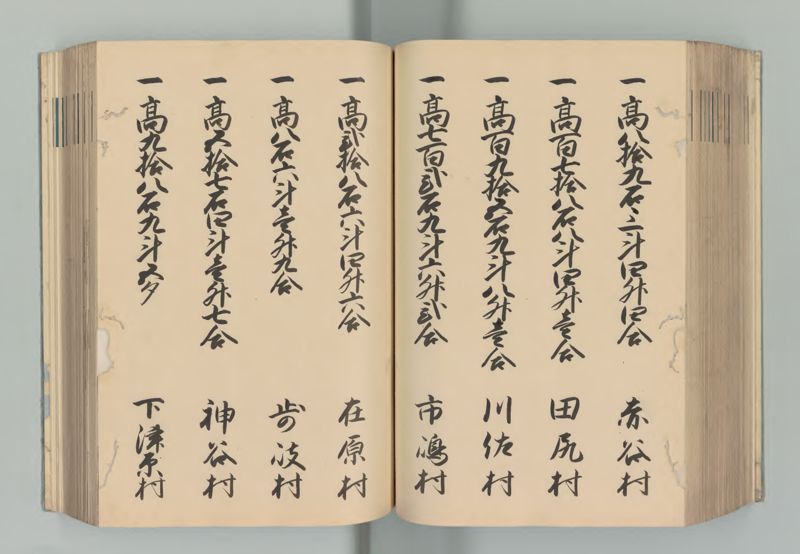 一 高八拾九石三斗四升四合 赤谷村
一 高百七拾八石八斗四升壱合 田尻村
一 高百九拾五石九斗八升壱合 川佐村
一 高七百弐石九斗六升弐合 市嶋村
一 高弐拾八石六斗四升六合 在原村
一 高八石六斗壱升九合 歩岐村
一 高五拾七石四斗壱升七合 神谷村
一 高九拾八石九斗五夕 下津原村